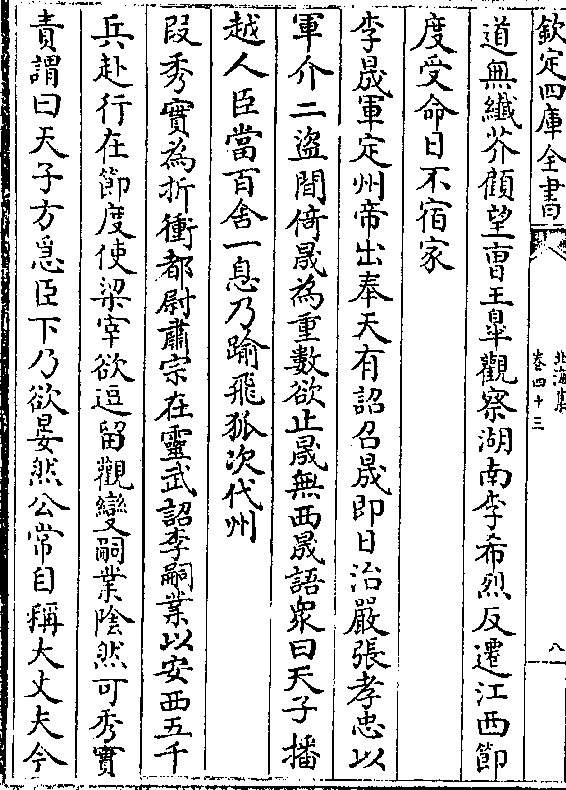 欽定四庫全書
北海集
卷四十三
八
道無纖芥顧望曹王臯觀察湖南李希烈反遷江西節
度受命日不宿家
李晟軍定州帝出奉天有詔召晟即日治嚴張孝忠以
軍介二盜間倚晟為重數欲止晟無西晟語衆曰天子播
越人臣當百舍一息乃踰飛狐次代州
段秀實為折衝都尉肅宗在靈武詔李嗣業以安西五千
兵赴行在節度使梁宰欲逗留觀變嗣業陰然可秀實
責謂曰天子方急臣下乃欲晏然公常自稱大丈夫今